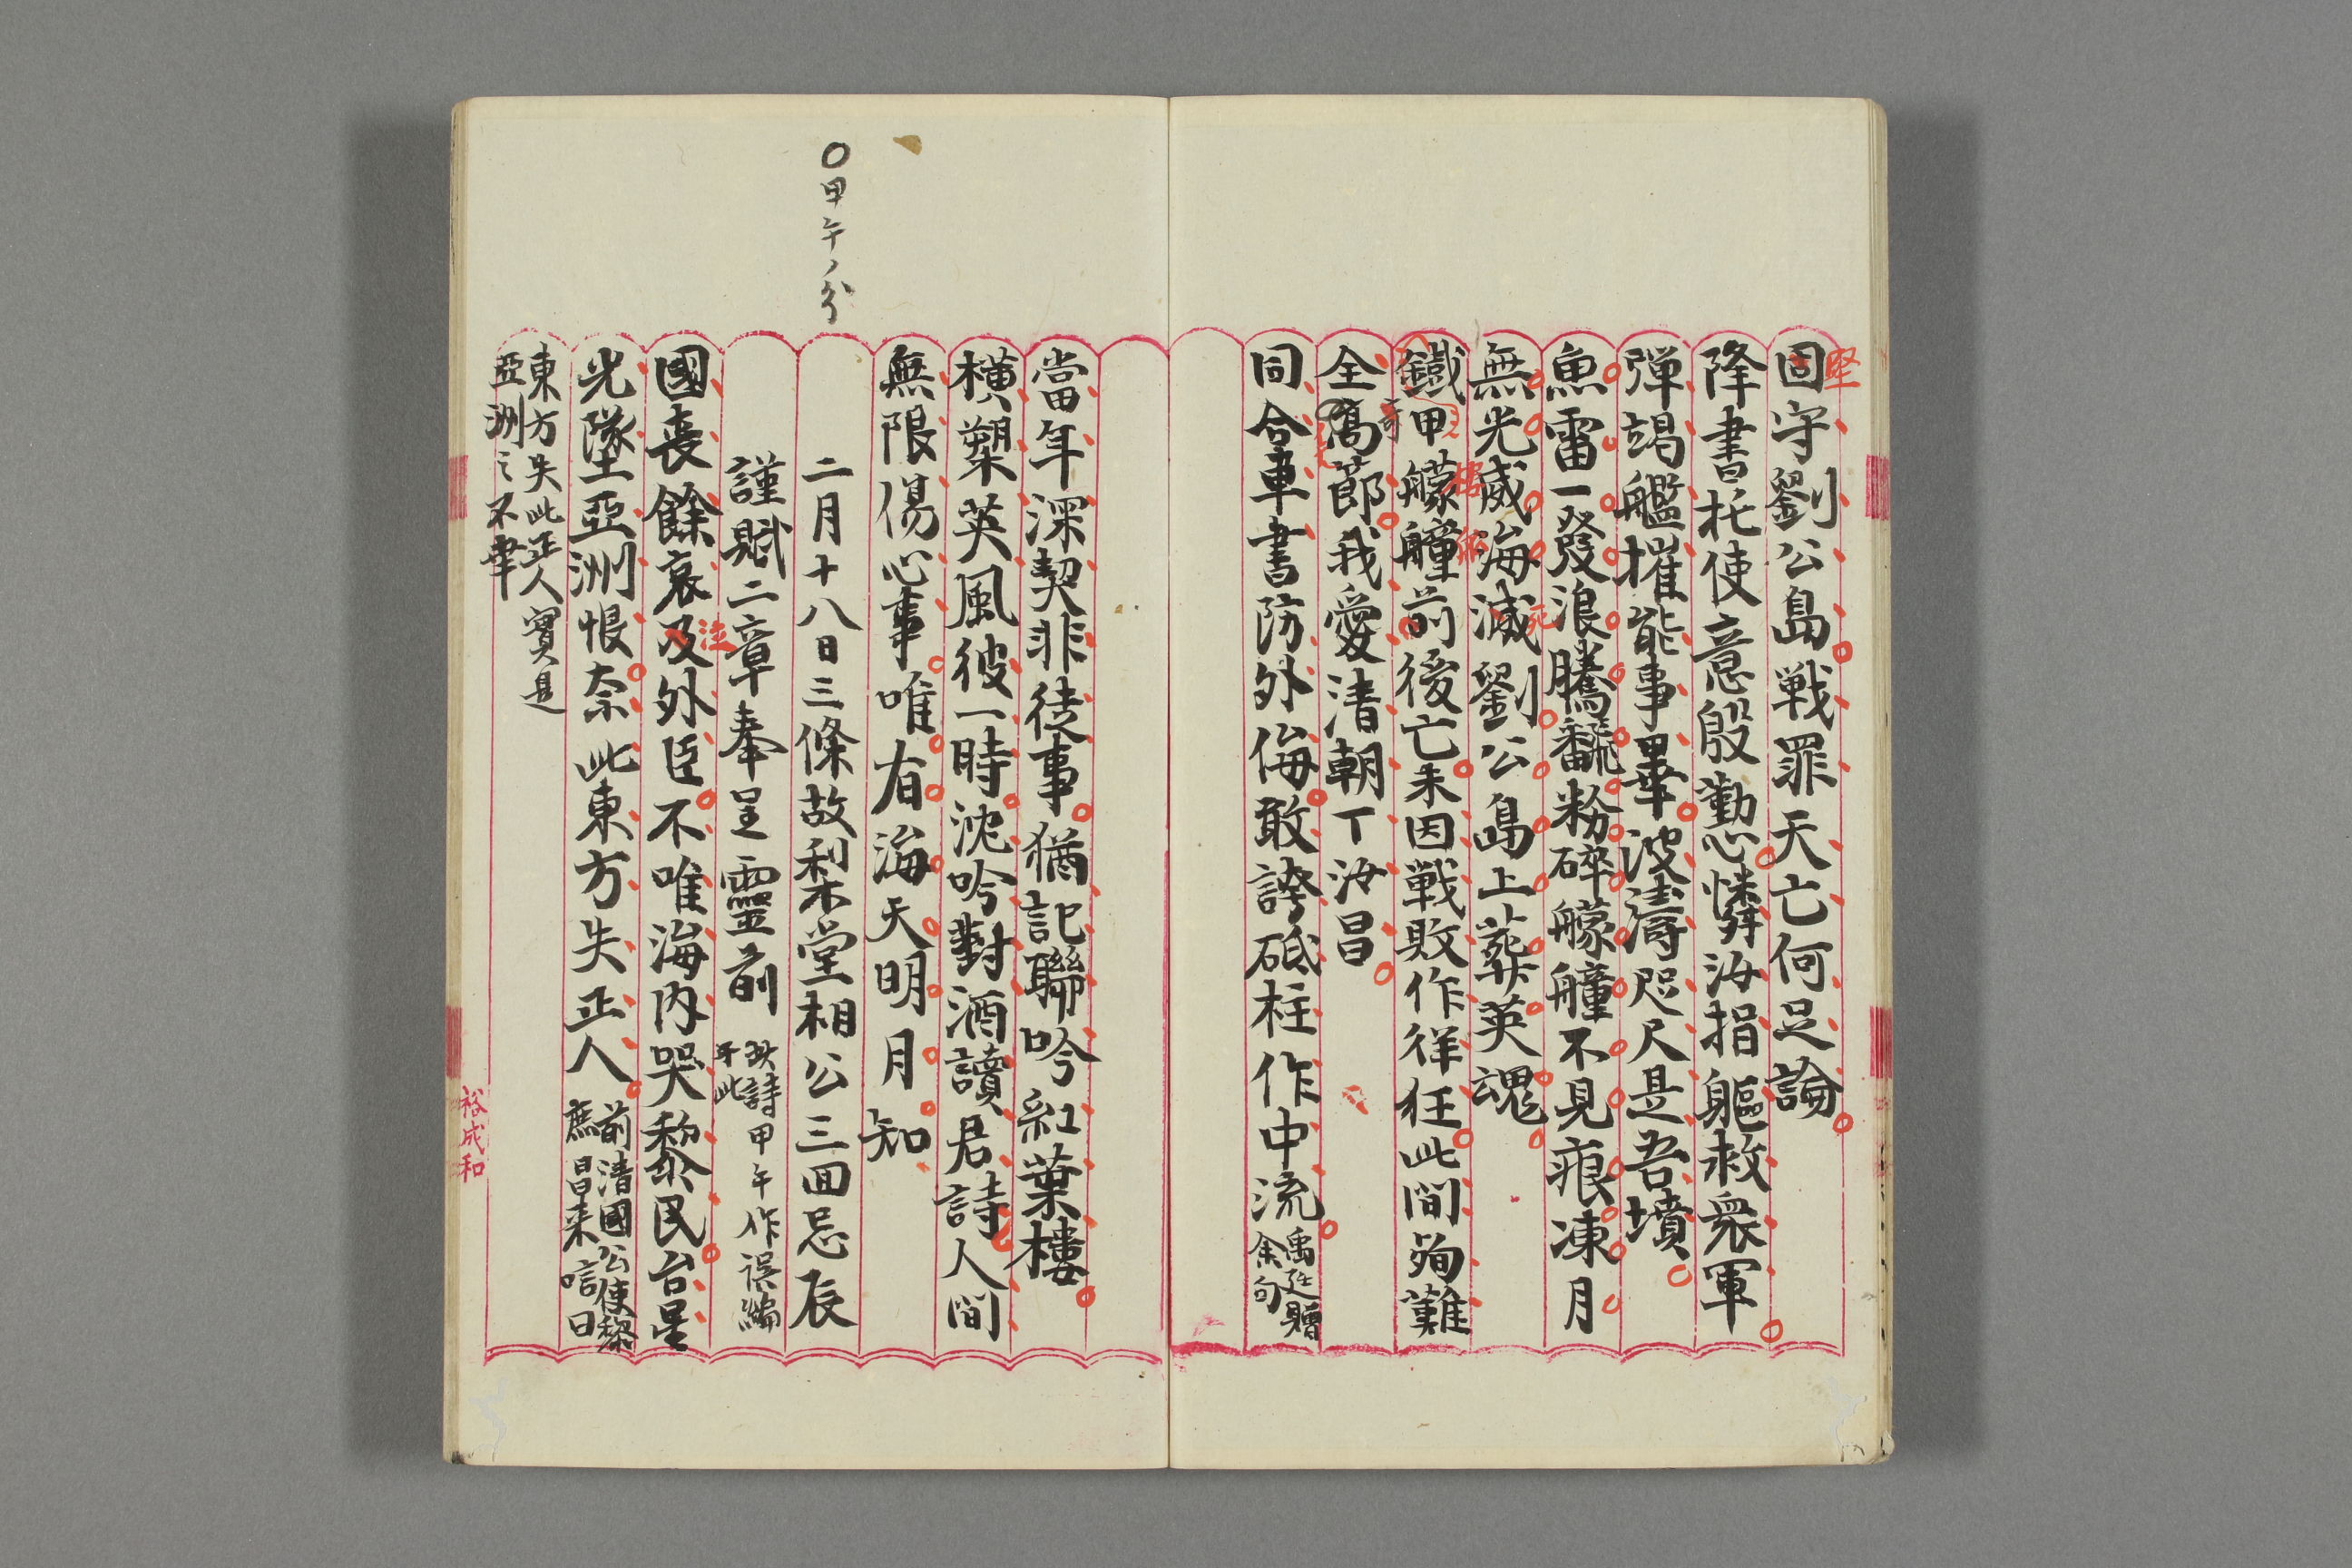 堅
固守劉公島戦罪天亡何足論
降書托使意慇懃心憐汝捐軀救衆軍
弾竭艦摧能事畢波濤咫尺是吾墳
魚雷一發浪騰飜粉碎艨艟不見痕凍月
無光威海滅劉公島上葬英魂
死
鐵甲艨艟前後亡未因戦敗作徉狂此間殉難
全高節我愛清朝丁汝昌
同合車書防外侮敢誇砥柱作中流
禹廷贈
余句
當年深契非徒事猶記聯吟紅葉樓
横槊英風彼一時沈吟對酒讀君詩人間
無限傷心事唯有海天明月知
〇甲午ノ分
二月十八日三條故梨堂相公三回忌辰
謹賦二章奉呈靈前
此詩甲午作誤編
于此
國喪餘哀及外臣不唯海内哭黎民台星
泣
光墜亞洲恨奈此東方失正人
前清國公使黎
庶昌来唁曰
東方失此正人實是
亞洲之不幸
裕成和